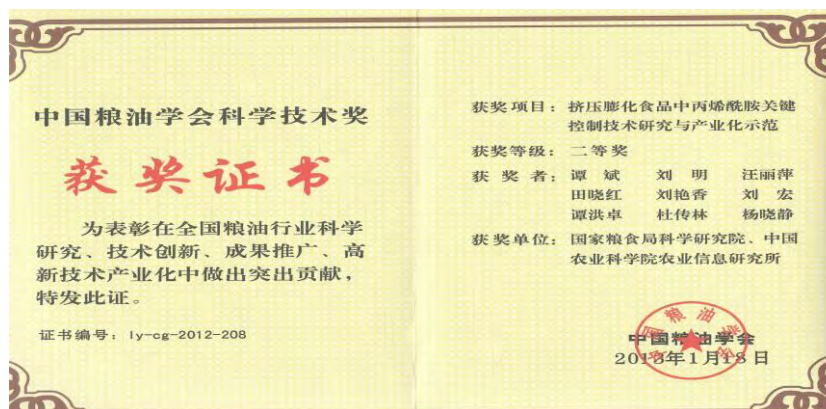 中国粮油学会科学技术奖
获奖证书
为表彰在全国粮油行业科学
研究、技术创新、成果推广、高
新技术产业化中做出突出贡献，
特发此证。
证书编号：ly-cg-2012-208
获奖项目：挤压膨化食品中丙烯酰胺关键
控制技术研究与产业化示范
获奖等级：二等奖
获 奖 者：谭 斌 刘 明 汪丽萍
田晓红 刘艳香 刘 宏
谭洪卓 杜传林 杨晓静
获奖单位：国家粮食局科学研究院、中国
农业科学院农业信息研究所
中国粮油学会
2013年1月18日